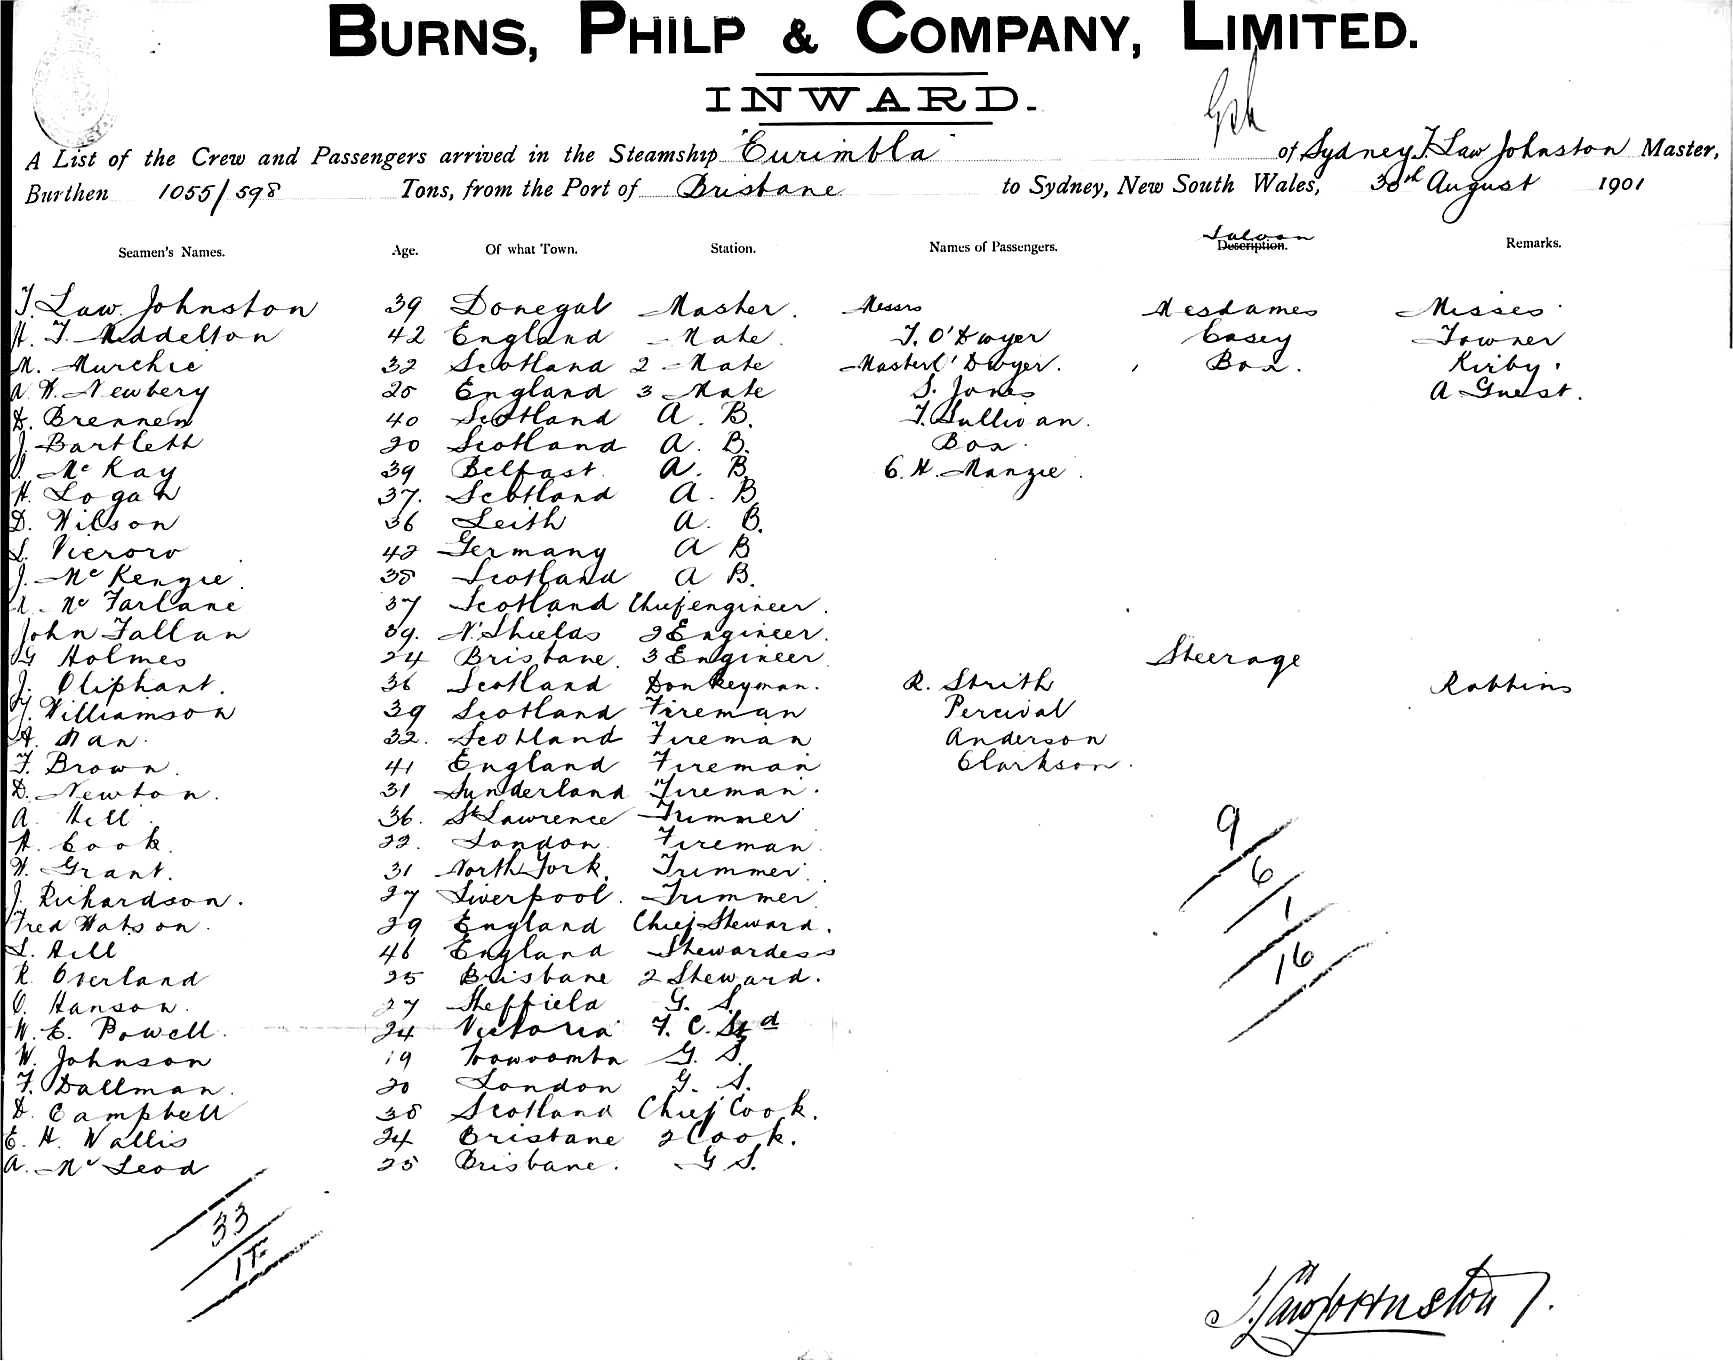 BURNS, PHILP & COMPANY, LIMITED.
INWARD.
A List of the Crew and Passengers arrived in the Steamship "Eurimbla" of Sydney, T. Law Johnston Master,
Burthen 1055/598 Tons, from the Port of Brisbane to Sydney, New South Wales, 30th August 1901
Saloon
Seamen's Names. Age. Of what Town. Station. Names of Passengers. Description. Remarks.
T. Law Johnston 39 Donegal Master. Messrs Mesdames Misses
H. T. Middelton 42 England Mate. T. O'Dwyer Casey Towner
M. Murchie 32 Scotland 2 Mate Master O'Dwyer. Box. Kirby.
A. W. Newbery 25 England 3 Mate S. Jones A Guest.
D. Brennen 40 Scotland A. B. T. Sullivan.
J. Bartlett 20 Scotland A. B. Box.
Mc Kay 39 Belfast. A. B C. H. Manzie.
H. Logan 37. Scotland A. B
D. Wilson 36 Leith A. B.
42 Germany A B
J. Mc Kenzie 35 Scotland A B.
Mc Farlane 37 Scotland Chief engineer.
John Fallan 39. N. Shields 2 Engineer.
G Holmes 24 Brisbane. 3 Engineer
Steerage
J. Oliphant. 36 Scotland Donkeyman. R. Strith Robbins
J. Williamson 39 Scotland Fireman Percival
A. Nan. 32. Scotland Fireman Anderson
T. Brown. 41 England Fireman Clarkson.
D. Newton. 31 Sunderland Fireman.
A. Hill. 36. St Lawrence Trimmer
H. Cook. 22. London. Fireman.
W. Grant. 31 North York. Trimmer.
J. Richardson. 27 Liverpool. Trimmer
Fred Watson. 29 England Chief Steward.
L. Hill 46 England Stewardess
R. Overland 25 Brisbane 2 Steward.
O. Hanson. 27 Sheffield G. S.
W. E. Powell. 24 Victoria F. C. Std
W. Johnson 19 Toowoomba G. S.
F. Dallman. 20 London G. S.
D. Campbell 38 Scotland Chief Cook.
E. H. Wallis 24 Brisbane 2 Cook.
A. Mc Leod 25 Brisbane. G S.
9
6
1
16
33
T. Law Johnston